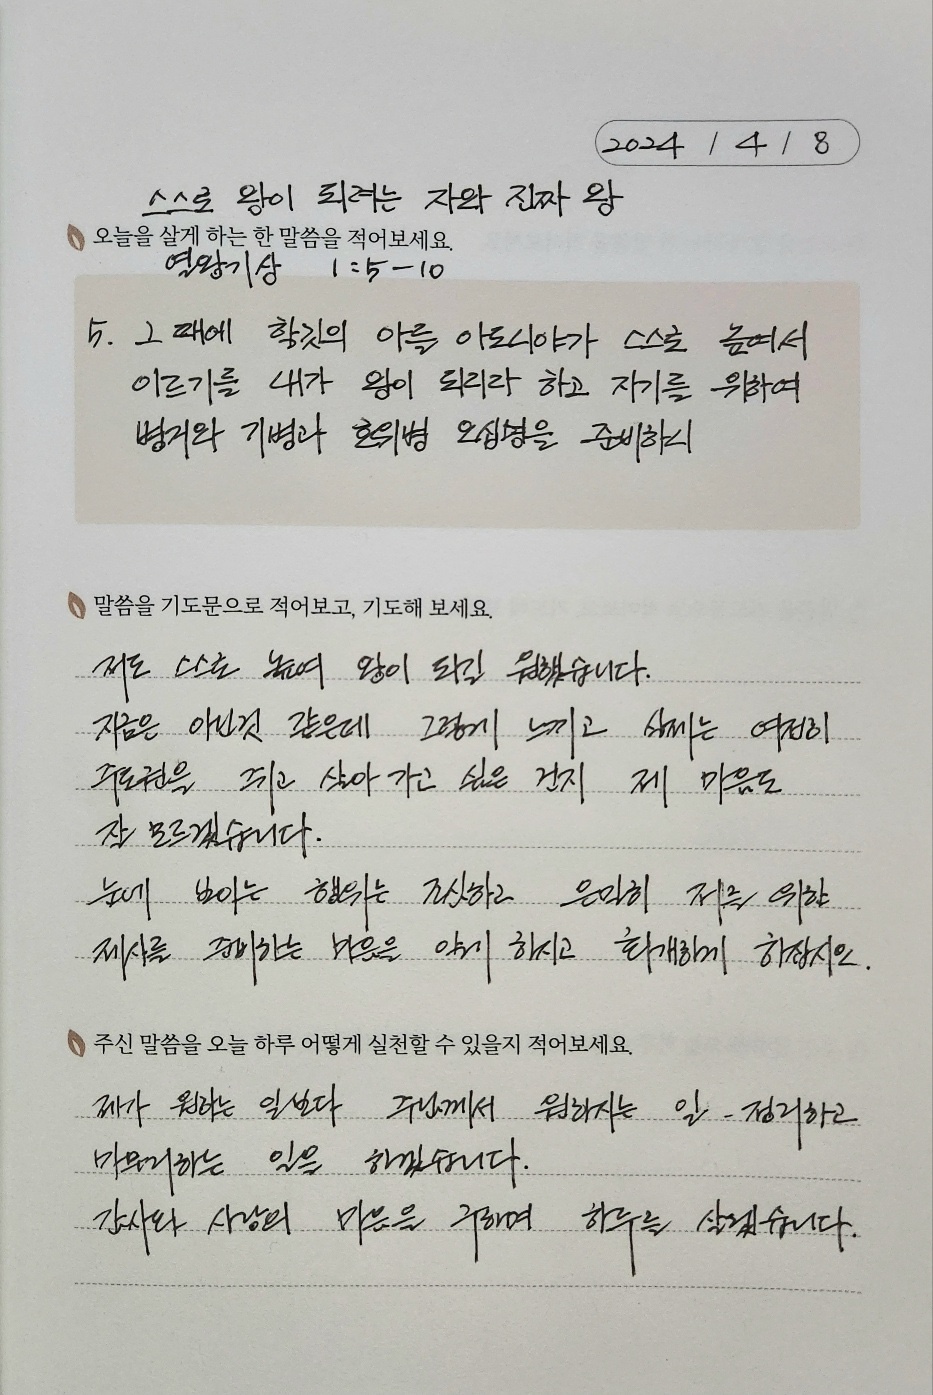 2024 / 4 / 8
스스로 왕이 되려는 자와 진짜 왕
오늘을 살게 하는 한 말씀을 적어보세요.
열왕기상 1:5-10
5. 그 때에 학깃의 아들 아도니야가 스스로 높여서
이르기를 내가 왕이 되리라 하고 자기를 위하여
병거와 기병과 호위병 오십명을 준비하니
말씀을 기도문으로 적어보고, 기도해 보세요.
저도 스스로 높여 왕이 되길 원했습니다.
지금은 아닌것 같은데 그렇게 느끼고 실제는 여전히
주도권을 쥐고 살아 가고 싶은 건지 제 마음도
잘 모르겠습니다.
눈에 보이는 행위는 조심하고 은밀히 저를 위한
제사를 준비하는 마음을 알게 하시고 회개하게 하잡시오.
주신 말씀을 오늘 하루 어떻게 실천할 수 있을지 적어보세요.
제가 원하는 일보다 주님께서 원하시는 일 - 정리하고
마무리하는 일을 하겠습니다.
감사와 사랑의 마음을 구하며 하루를 살겠습니다.